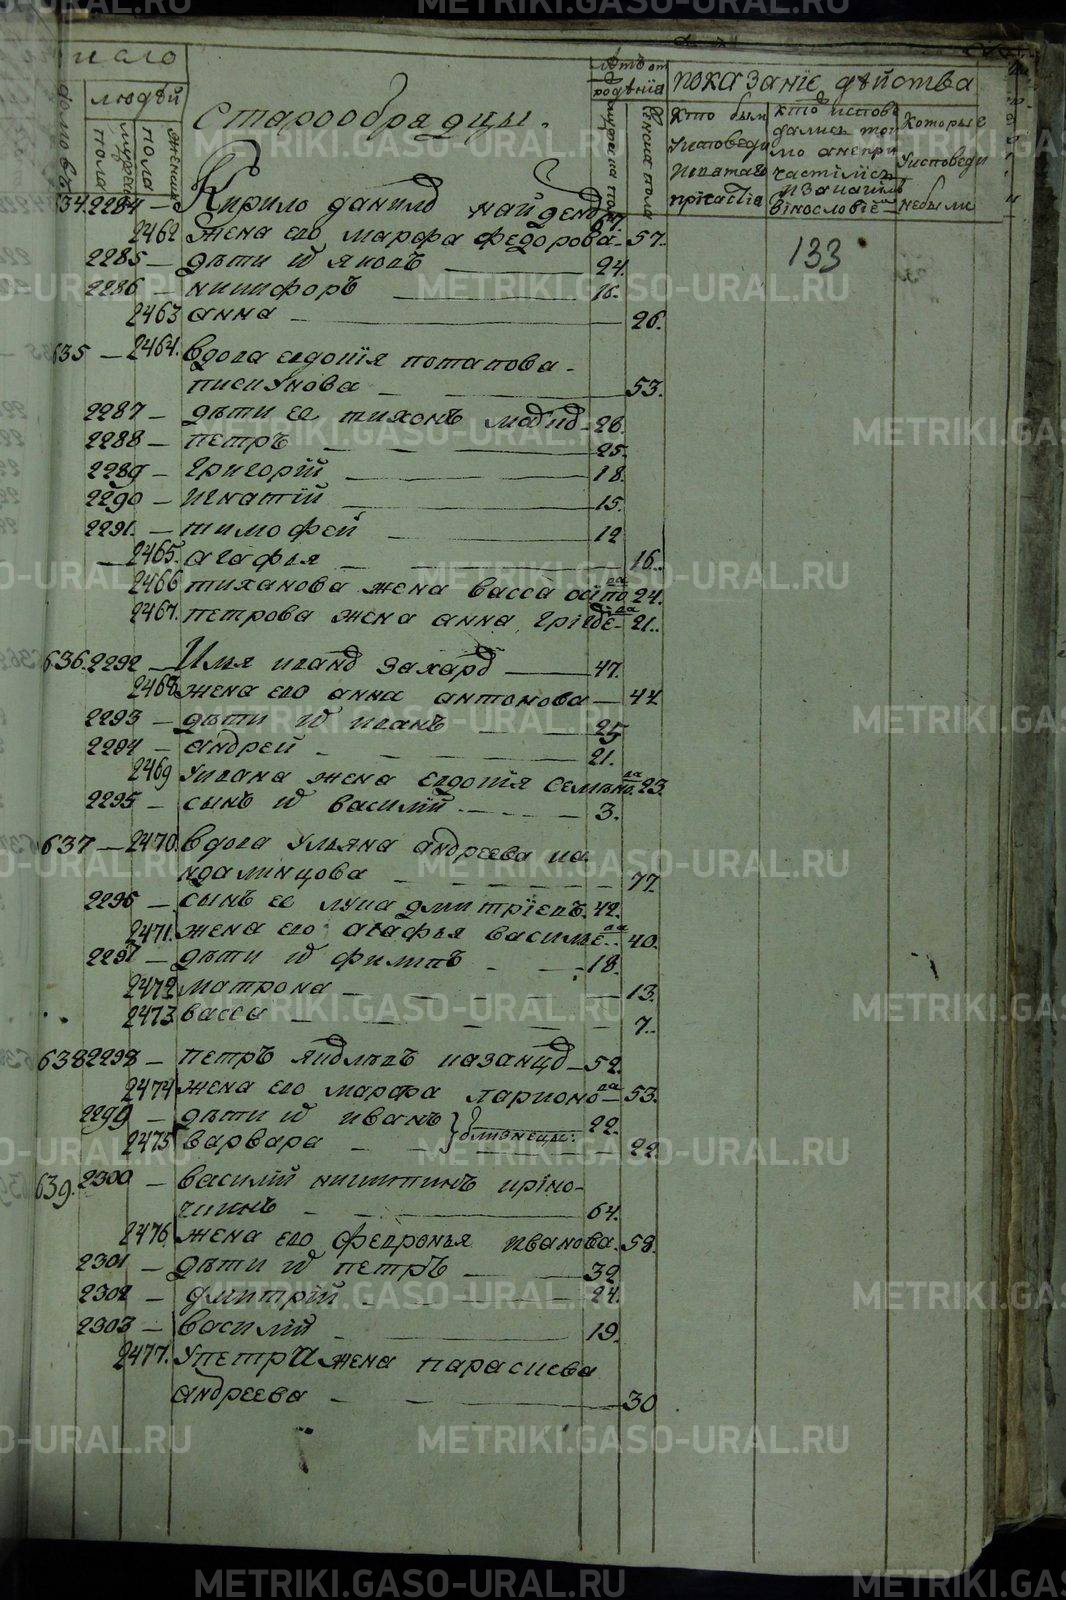 число
домовъ
людѣй
мужеска пола
женска пола
Старообрадцы.
лѣтъ от рождѣния
мущеска пол
женска пола
показанїе дѣйства
кто был у исповеди и святаго причастїя
кто исповедались токмо а не причастились и за каким винословїем
которые у исповеди не были
133
634. 2284 — Кирило данилов найденов 67.
2462 жена его марфа федорова — 57.
2285 — дѣти их яковъ — 24.
2286 — никифоръ — 16.
2463 анна — 26.
635 — 2464. вдова евдокїя потапова
пискунова — 53.
2287 — дѣти ее тихонъ — 26.
2288 — петръ — 25.
2289 — григорїй — 18.
2290 — игнатїй — 15.
2291. — тимофей — 12
2465. агафья — 16.
2466 тиханова жена васса осипова 24.
2467. петрова жена анна — 21.
636. 2292 — Илья иванов захаров — 47.
2468 жена его анна антонова — 44
2293 — дѣти их иванъ — 25
2294 — андрей — 21.
2469 у ивана жена евдокїя семенова 23.
2295 — сынъ их василїй — 3.
637 — 2470. вдова ульяна андреева ка
ндалинцова — 77
2296 — сынъ ее лука дмитрїевъ. 42.
2471. жена его агафья васильева 40.
2297 — дѣти их филипъ — 18.
2472 матрона — 13.
2473 васса — 7.
638 2298 — петръ яковлевъ казанцов — 52.
2474 жена его марфа ларионова — 53.
2299 — дѣти их иванъ } близнецы: 22.
2475 варвара — 22
639. 2300 — василїй никитинъ криво-
2476. жена его февронья иванова. 58.
2301 — дѣти их петръ — 32
2302 — дмитрїй — 24.
2303 — василїй — 19.
2477. у петра жена параскева
андреева — 30
METRIKI.GASO-URAL.RU